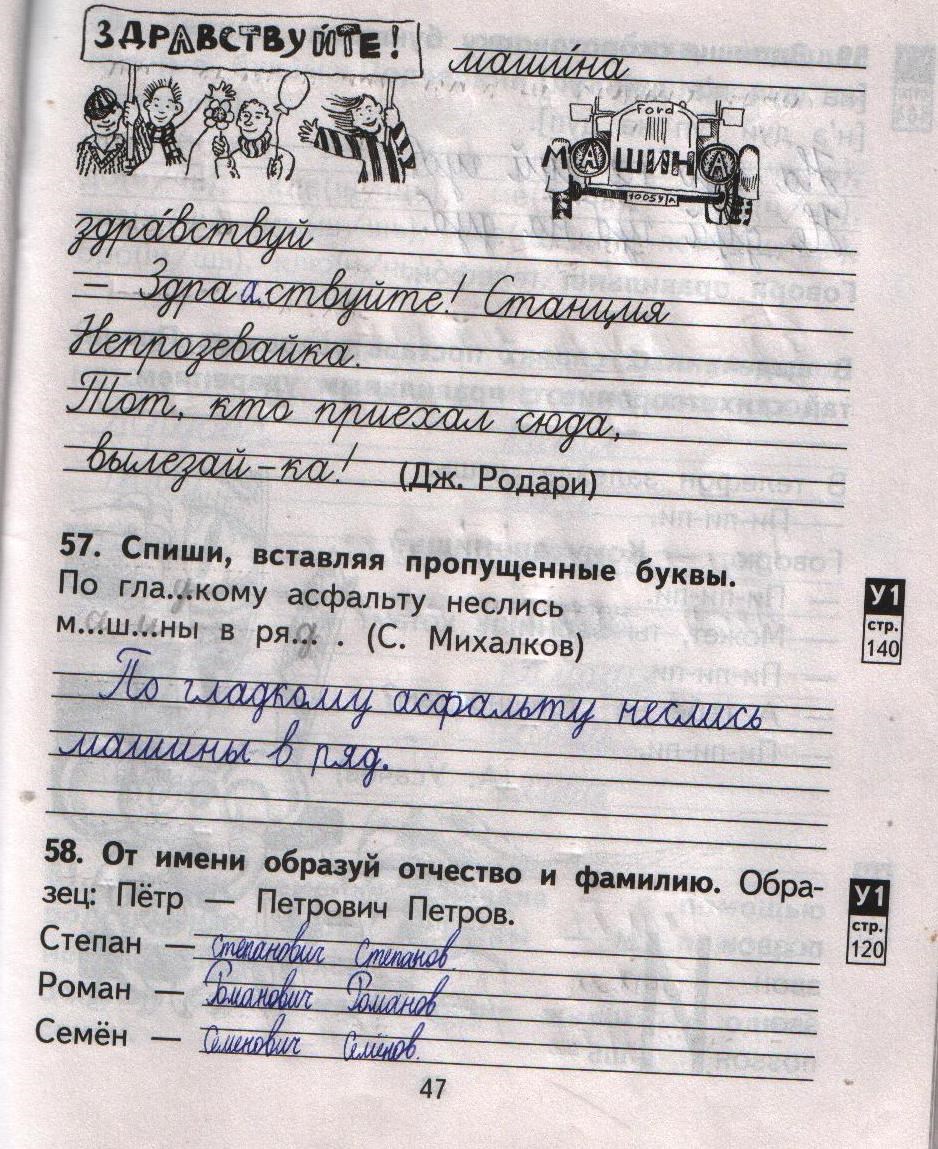 ЗДРАВСТВУЙТЕ!
маши́на
Ford
МАШИНА
10059А
здра́вствуй
– Здраaствуйте! Станция
Непрозевайка.
Тот, кто приехал сюда,
вылезай-ка!
(Дж. Родари)
57. Спиши, вставляя пропущенные буквы.
По гла...кому асфальту неслись
м...ш...ны в ря... . (С. Михалков)
У1
стр.
140
По гладкому асфальту неслись
машины в ряд.
58. От имени образуй отчество и фамилию. Обра-
зец: Пётр — Петрович Петров.
У1
стр.
120
Степан — Степанович Степанов.
Роман — Романович Романов
Семён — Семенович Семёнов.
47